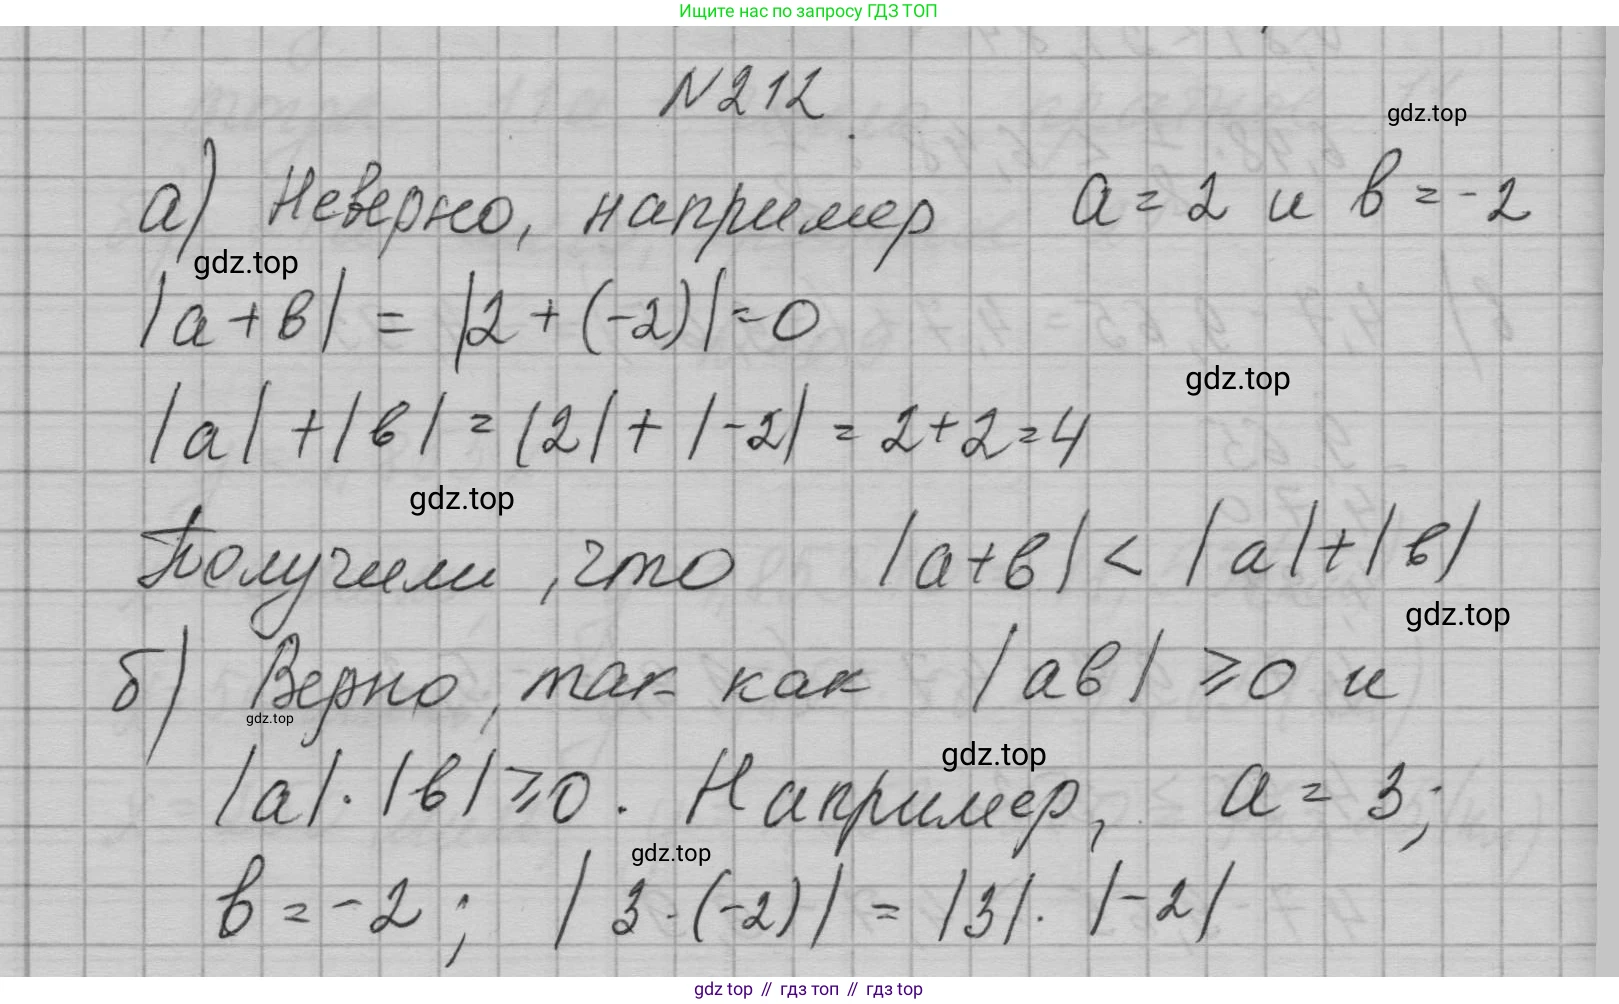 Ищите нас по запросу ГДЗ ТОП
N212
gdz.top
а) Неверно, например a = 2 и в = -2
gdz.top
|a+в| = |2+(-2)|=0
gdz.top
|a|+|в| = |2|+|-2| = 2+2=4
gdz.top
Получили, что |a+в| < |a|+|в|
gdz.top
б) Верно, так как |aв| ⩾0 и
gdz.top
gdz.top
|a|·|в|⩾0. Например, a = 3;
gdz.top
в = -2; |3·(-2)| = |3|·|-2|
gdz top // гдз топ // гдз top